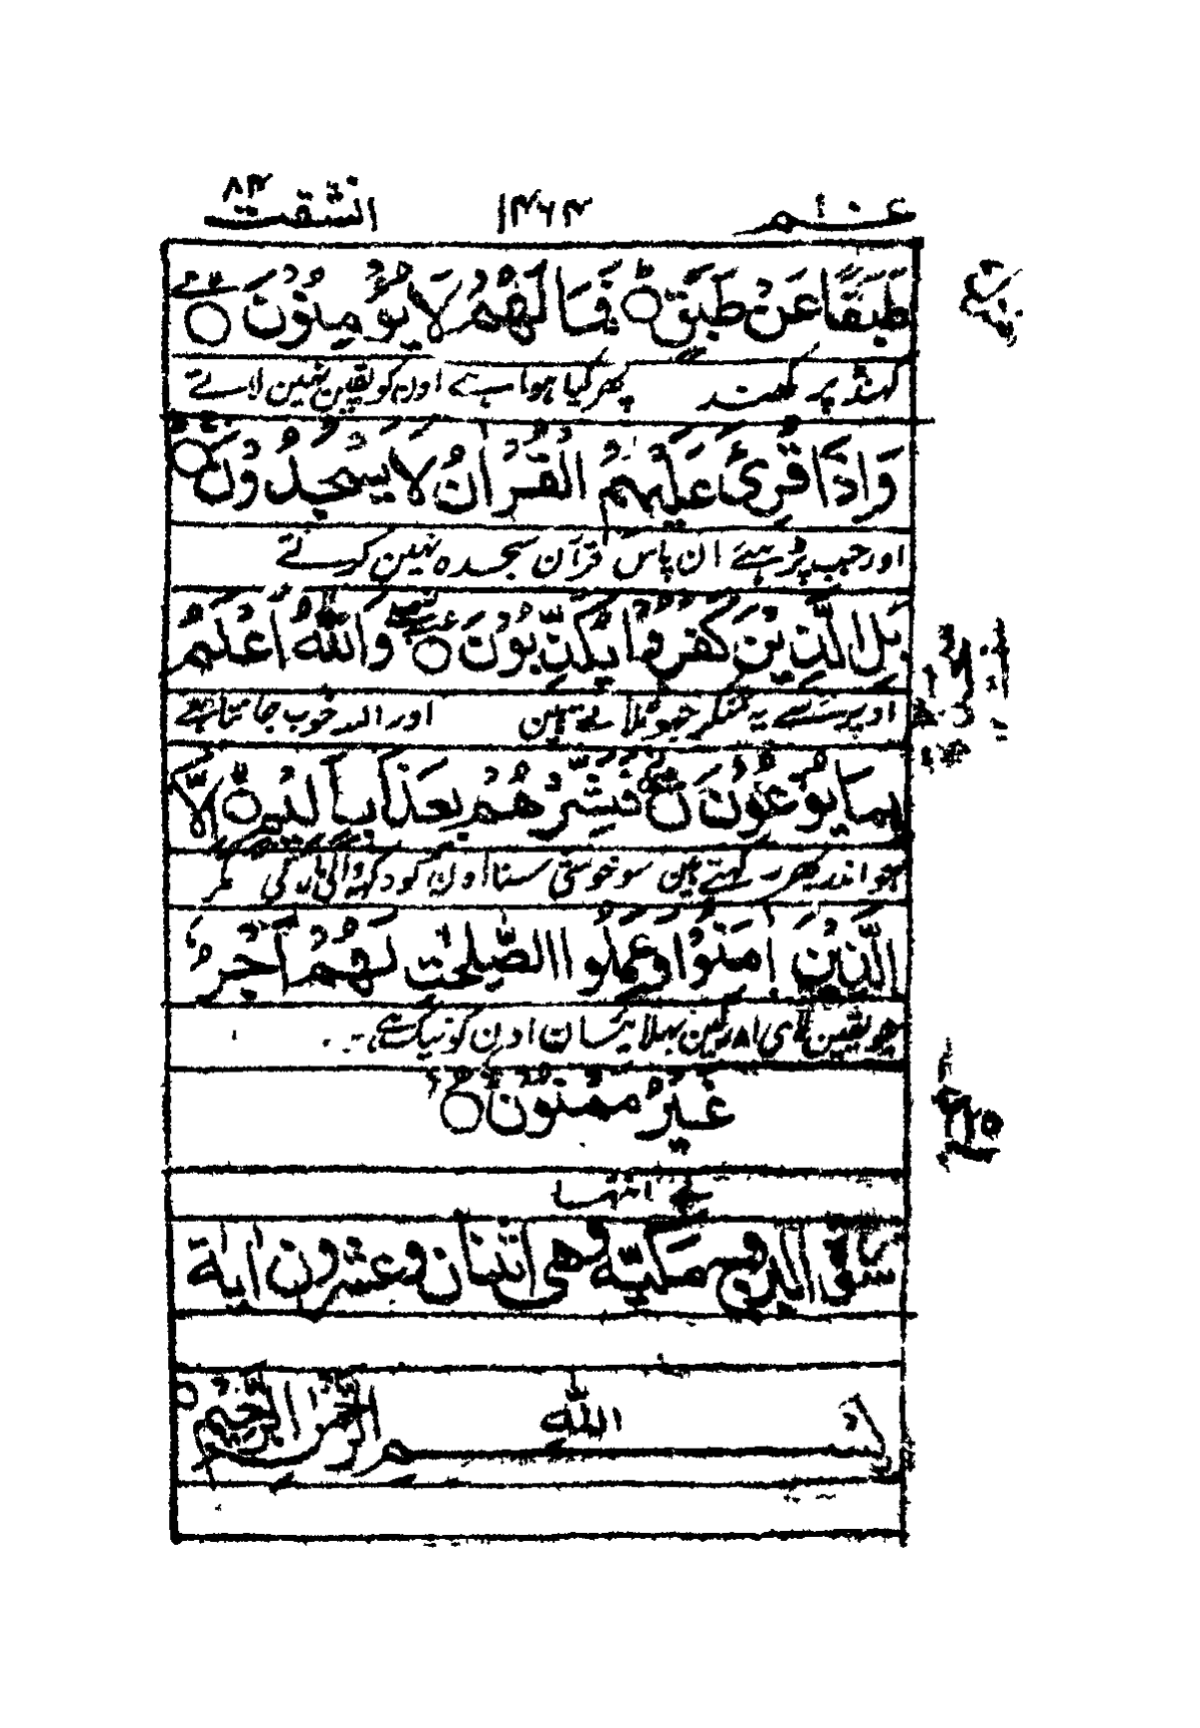 عـــم ۱۴۶۴ انشقت ۸۴
طَبَقًا عَنْ طَبَقٍ ۝ فَمَا لَهُمْ لَا يُؤْمِنُوْنَ ۝
کھنڈ پر کھنڈ پھر کیا ہوا ہے اون کو یقین نہین لاتے
وَاِذَا قُرِئَ عَلَيْهِمُ الْقُرْاٰنُ لَا يَسْجُدُوْنَ ۝
اور جب پڑہئے ان پاس قرآن سجدہ نہین کرتے
بَلِ الَّذِيْنَ كَفَرُوْا يُكَذِّبُوْنَ ۝ وَاللّٰهُ اَعْلَمُ
اوپر سے یہ منکر جھوٹلاتے ہین اور اللہ خوب جانتا ہے
بِمَا يُوْعُوْنَ ۝ فَبَشِّرْهُمْ بِعَذَابٍ اَلِيْمٍ ۝ اِلَّا
جو اندر بھر رکھتے ہین سو خوشی سنا اون کو دکھ والی مار کی مگر
الَّذِيْنَ اٰمَنُوْا وَعَمِلُوا الصّٰلِحٰتِ لَهُمْ اَجْرٌ
جو یقین لائے اور کین بھلائیان اون کو نیگ ہے
غَيْرُ مَمْنُوْنٍ ۝
بے انتہا
سورة البروج مكية وهى اثنتان وعشرون اية
بسم الله الرحمن الرحيم ۝